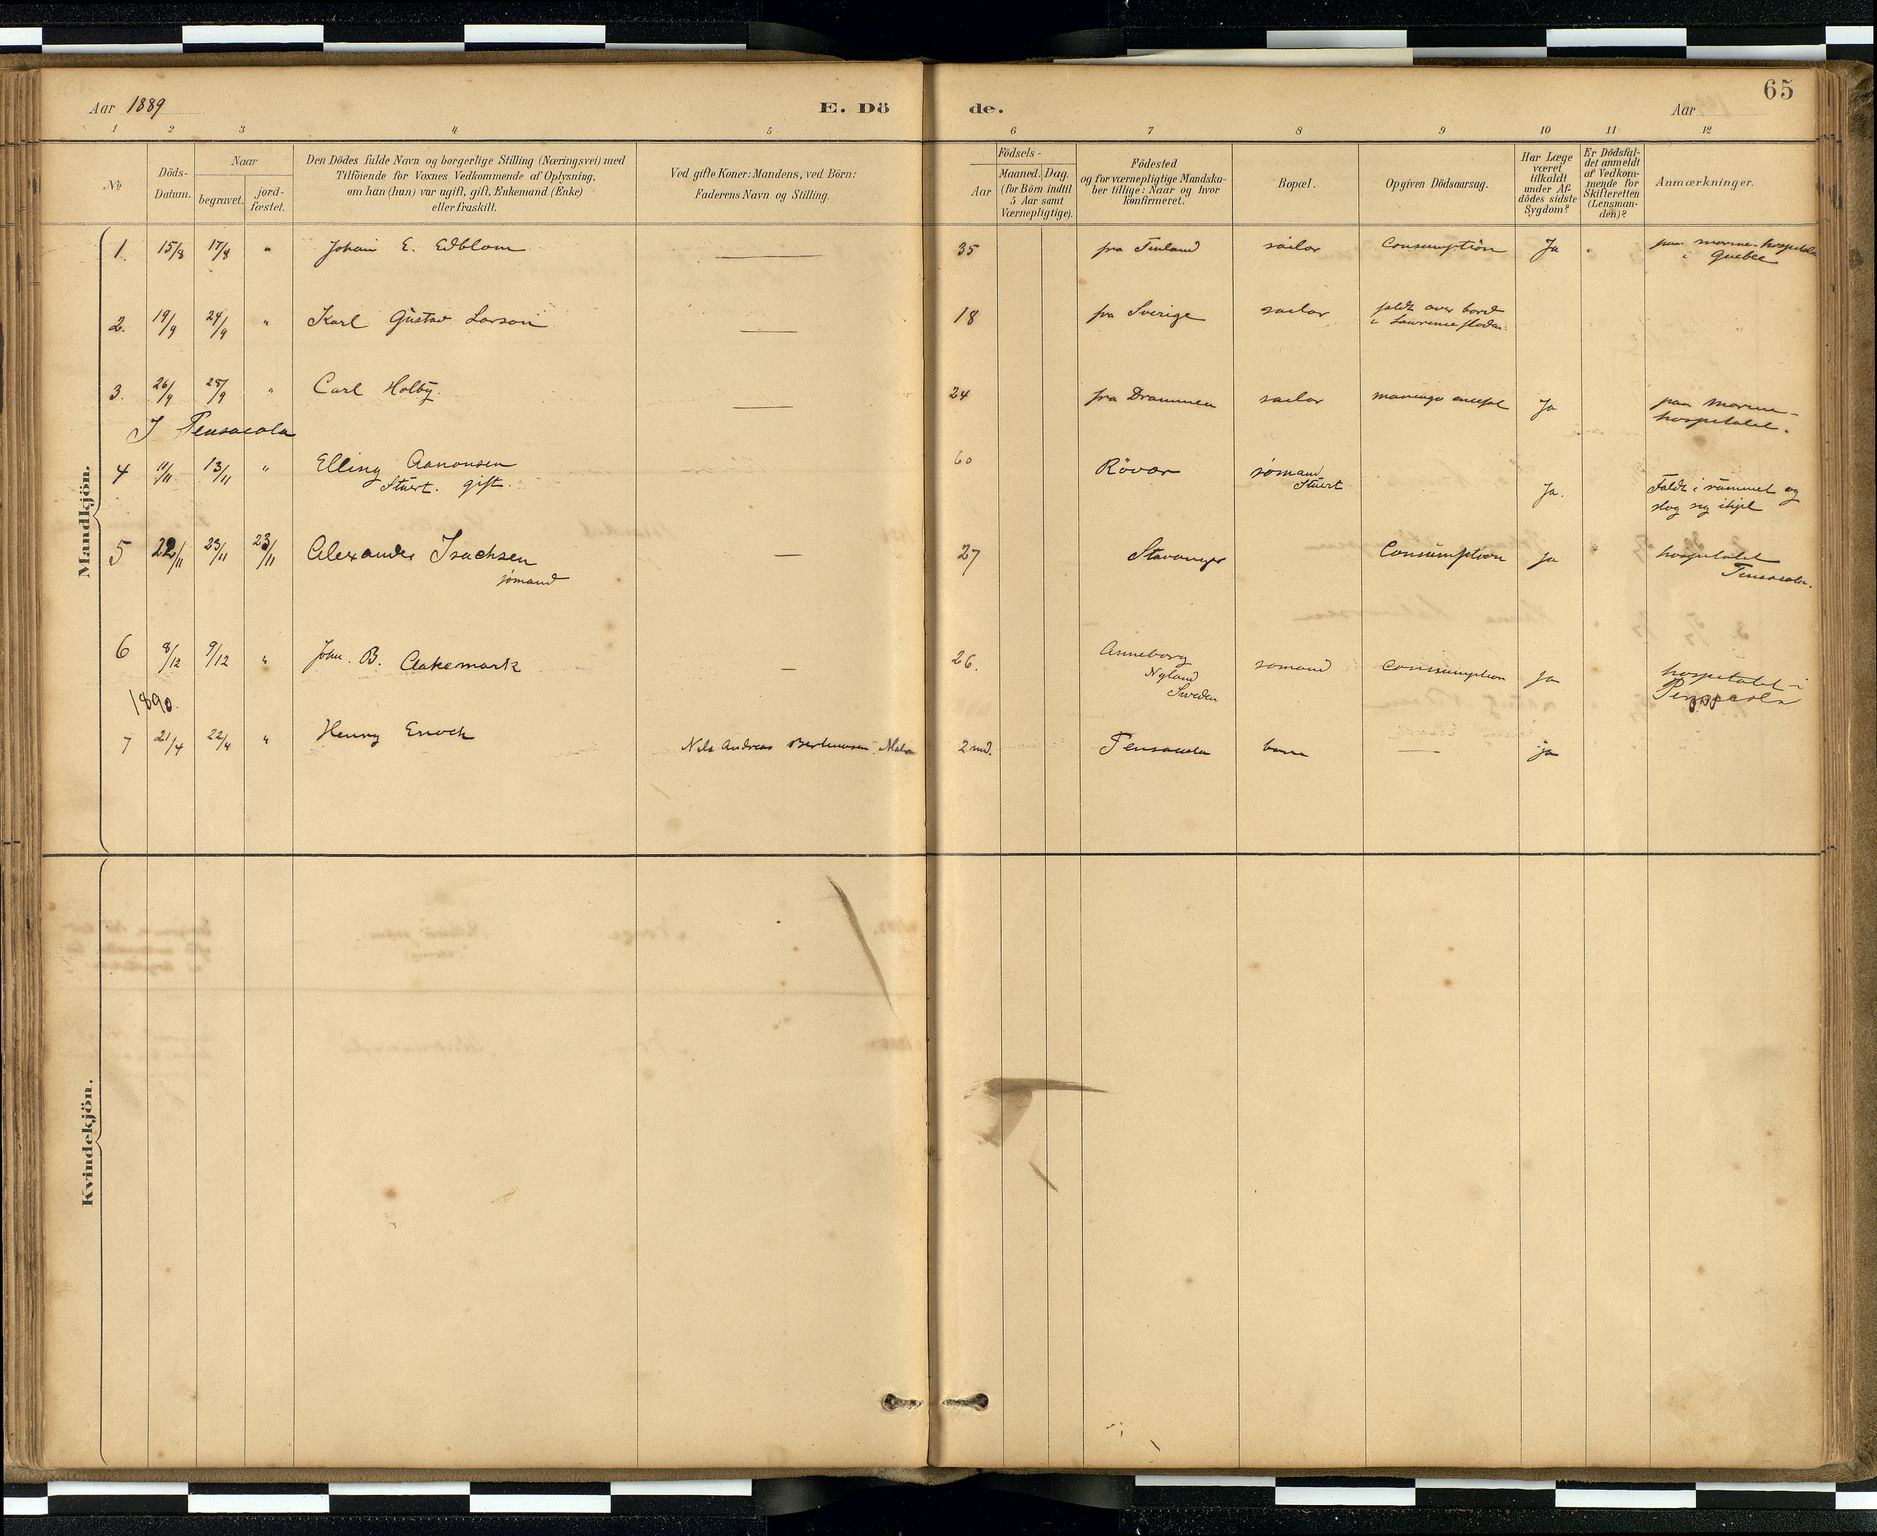 Aar 1889
E. Dö
de.
Aar
65
1 2 3 4 5 6 7 8 9 10 11 12
No
Döds-
Datum.
Naar
begravet.
jord-
fæstet.
Den Dödes fulde Navn og borgerlige Stilling (Næringsvei) med
Tilföiende for Voxnes Vedkommende af Oplysning,
om han (hun) var ugift, gift, Enkemand (Enke)
eller fraskilt.
Ved gifte Koner: Mandens, ved Börn:
Faderens Navn og Stilling.
Födsels-
Aar
Maaned. Dag.
(for Börn indtil
5 Aar samt
Værnepligtige).
Födested
og for værnepligtige Mandska-
ber tillige: Naar og hvor
konfirmeret.
Bopæl.
Opgiven Dödsaarsag.
Har Læge
været
tilkaldt
under Af-
dödes sidste
Sygdom?
Er Dödsfal-
det anmeldt
af Vedkom-
mende for
Skifteretten
(Lensman-
den)?
Anmærkninger.
Mandkjön.
1. 15/8 17/8 " Johan E. Edblom — 35 fra Finland sailor Consumption Ja paa marine-hospitalet
i Quebec
2. 19/9 24/9 " Karl Gustav Larson — 18 fra Sverige sailor faldt over bord
i Lawrence floden.
3. 26/9 28/9 " Carl Holby. — 24 fra Drammen sailor Ja paa marine-
hospitalet.
I Pensacola
4 11/11 13/11 " Elling Aanonsen 60 Rövær sømand
Stuert. gift. Stuert Ja. Faldt i rummet og
slog sig ihjel
5 22/11 23/11 23/11 Alexander Isachsen — 27 Stavanger Consumption Ja hospitalet
sømand Pensacola.
6 8/12 9/12 " John. B. Clakemark — 26. Anneborg
Nyland
Sweden
sømand Consumption Ja hospitalet i
Pensacola
1890.
7 21/4 22/4 " Henry Enoch Nils Andreas 2 md. Pensacola barn — ja
Kvindekjön.